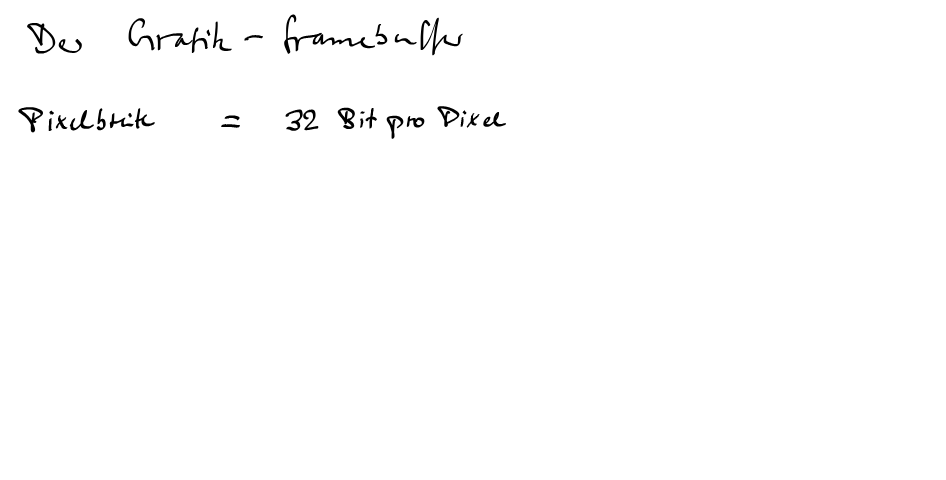 Der Grafik-Framebuffer
Pixelbreite = 32 Bit pro Pixel